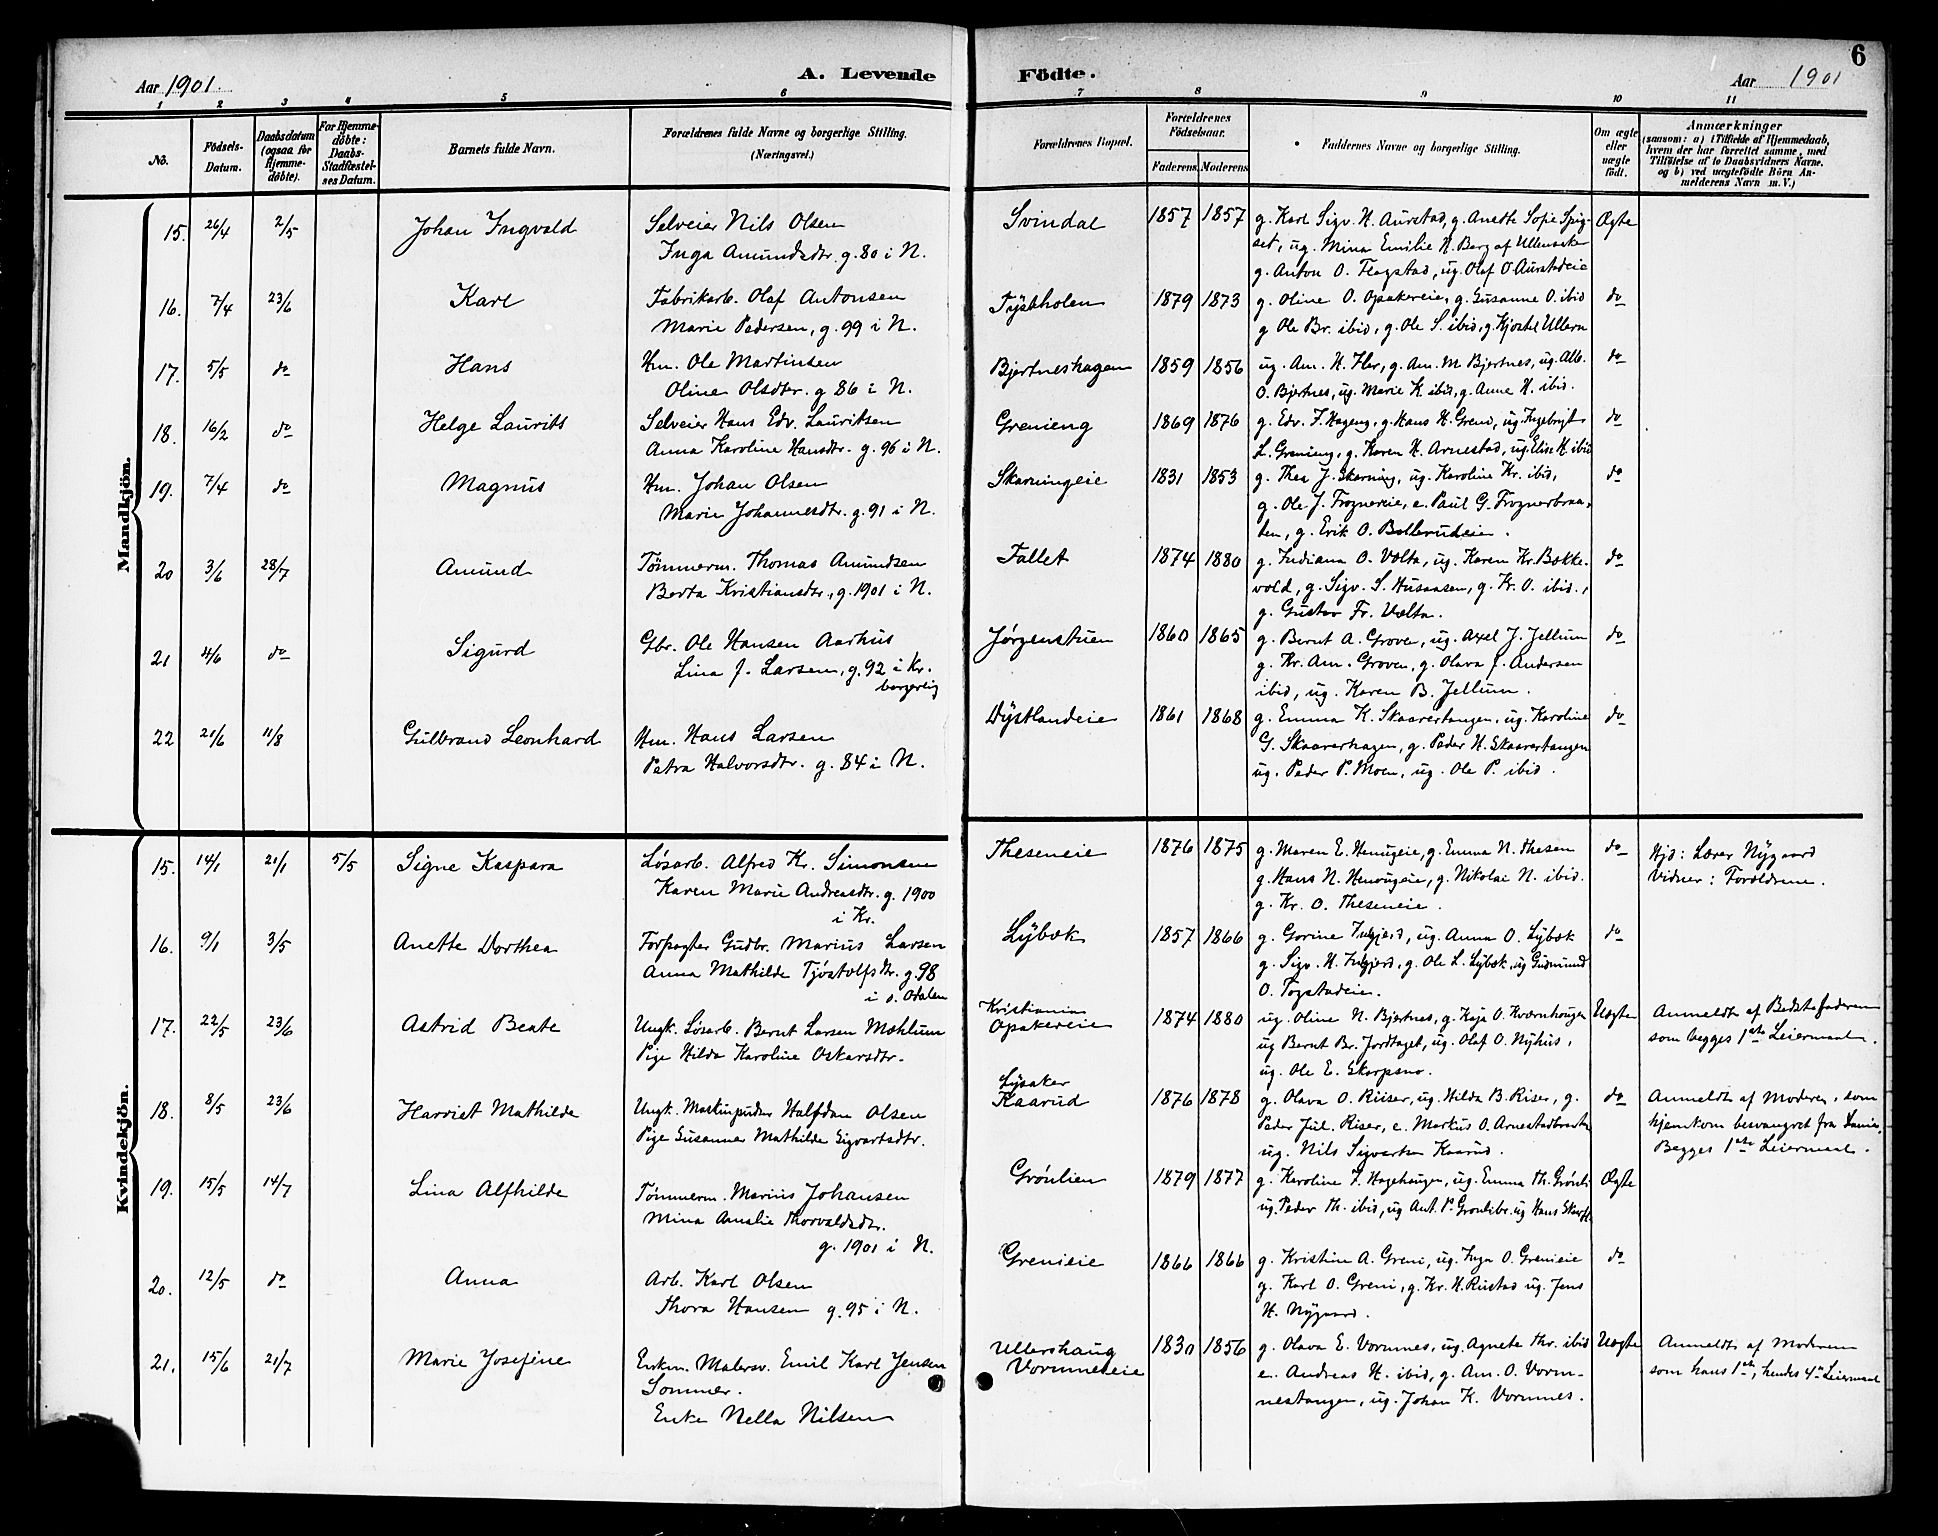 6
Aar 1901.
A. Levende Födte.
Aar 1901
1 2 3 4 5 6 7 8 9 10 11
Nö.
Födsels-Datum.
Daabsdatum (ogsaa for Hjemme-döbte).
For Hjemme-döbte: Daabs-Stadfæstel-ses Datum.
Barnets fulde Navn.
Forældrenes fulde Navne og borgerlige Stilling.
(Næringsvei.)
Forældrenes Bopæl.
Forældrenes Födselsaar.
Faderens. Moderens
Faddernes Navne og borgerlige Stilling.
Om ægte eller uægte födt.
Anmærkninger
(saasom: a) i Tilfælde af Hjemmedaab,
hvem der har forrettet samme, med
Tilföielse af to Daabsvidners Navne,
og b) ved uægtefödte Börn An-
melderens Navn m. V.)
Mandkjön.
15. 26/4 2/5 Johan Ingvald Selveier Nils Olsen Svindal 1857 1857 g. Karl Sigv. H. Aurstad, g. Anette Sofie Spig- Ægte
Inga Amundsdtr. g. 80 i N. set, ug. Mina Emilie H. Berg af Ullensaker
g. Anton O. Flagstad, ug. Olaf O. Aurstadeie
16. 7/4 23/6 Karl Fabrikarb. Olaf Antonsen Tyskholen 1879 1873 g. Oline O. Opakereie, g. Susanne O. ibid do
Marie Pedersen, g. 99 i N. g Ole Br. ibid, g. Ole S. ibid, g. Kjostel Ullern
17. 5/5 do Hans Hm. Ole Martinsen Bjertneshagen 1859 1856 ug. Am. H. Her, g. Am. M. Bjertnes, ug. Alb. do
Oline Olsdter. g 86 i N. O. Bjertnes, ug. Marie K. ibid, g. Anne H. ibid.
18. 16/2 do Helge Laurits Selveier Hans Edv. Lauritsen Grenieng 1869 1876 g. Edv. F. Hageng, g. Hans H. Greni, ug. Ingebrigt do
Anna Karoline Hansdtr. g. 96 i N. L. Grenieng, g. Karen H. Arnestad, ug. Elise H. ibid
19. 7/4 do Magnus Hm. Johan Olsen Skarningeie 1831 1853 g. Thea J. Skarning, ug. Karoline Kr. ibid, do
Marie Johannesdtr. g. 91 i N. g. Ole J. Frognereie, e. Paul G. Frognerbraa-
ten, g. Erik O. Bollerudeie.
20 3/6 28/7 Amund Tømmerm. Thomas Amundsen Fallet 1874 1880 g. Indiana O. Vælta, ug. Karen Kr. Bække- do
Berta Kristiansdtr., g. 1901 i N. vold, g. Sigv. S. Husaasen, g. Kr. O. ibid.,
g. Gustav Fr. Vælta.
21 4/6 do Sigurd Gbr. Ole Hansen Aarhus Jørgenstuen 1860 1865 g. Bernt A. Groven, ug. Axel J. Jellum do
Lina J. Larsen, g. 92 i Kr. g. Kr. Am. Groven, g. Olava J. Andersen
borgerlig ibid, ug. Karen B. Jellum.
22 21/6 11/8 Gulbrand Leonhard Hm. Hans Larsen Dystlandeie 1861 1868 g. Emma K. Skaarertangen, ug. Karoline do
Petra Halvorsdtr. g. 84 i N. G. Skaarerhagen, g. Peder H. Skaarertangen
ug. Peder P. Moen, ug. Ole P. ibid.
Kvindekjön.
15. 14/1 21/1 5/5 Signe Kaspara Løsarb. Alfred Kr. Simonsen Theseneie 1876 1875 g. Maren E. Henugeie, g. Emma N. Thesen do Hjd: Lærer Nygaard
Karen Marie Andreasdtr. g. 1900 g. Hans N. Henougeie, g. Nikolai N. ibid. Vidner: Forældrene.
i Kr. g. Kr. O. Theseneie.
16. 9/1 3/5 Anette Dorthea Forpagter Gudbr. Marius Larsen Lybæk 1857 1866 g. Gorine Fulgjerd, ug. Anna O. Lybæk do
Anna Mathilde Tjøstolfsdtr. g. 98 g. Sigv. H. Fulgjerd, g. Ole L. Lybæk, ug Gudmund
i O. Odalen O. Togstadeie.
17. 22/5 23/6 Astrid Beate Ungk. Løsarb. Bernt Larsen Mæhlum Kristiania 1874 1880 ug. Oline N. Bjertnes, g. Kaja O. Kværnhougen Uægte Anmeldt af Bedstefaderen
Pige Hilda Karoline Oskarsdtr. Opakereie ug Bernt Br. Jordtaget, ug. Olaf O. Nyhus, som begges 1ste Leiermaal.
ug. Ole E. Skarpsno.
18. 8/5 23/6 Harriet Mathilde Ungk. Maskinpudser Halfdan Olsen Lysaker 1876 1878 g. Olava O. Riiser, ug. Hilda B. Riser, g. do Anmeldt af Moderen, som
Pige Susanna Mathilde Sigvartsdtr. Kaarud Peder Jul. Riser, e. Markus O. Arnestadbraaten hjemkom besvangret fra
ug. Nils Sigvartsen Kaarud. Begges 1ste Leiermaal.
19. 15/5 14/7 Lina Alfhilde Tømmerm. Marius Johansen Grønlien 1879 1877 g. Karoline F. Hagehaugen, ug. Emma Th. Grønli Ægte
Mina Amalie Thorvaldsdtr. ug. Peder Th. ibid, ug Ant. P. Grønlibr. ug Hans
g. 1901 i N.
20. 12/5 do Anna Arb. Karl Olsen Grenieie 1866 1866 g. Kristine A. Greni, ug. Inga O. Grenieie do
Thora Hansen g. 95 i N. g. Karl O. Greni, g. Kr. H. Rustad ug. Jens
H. Nygaard.
21. 15/6 21/7 Marie Josefine Enkm. Malersv. Emil Karl Jensen Ullershaug 1830 1856 g. Olava E. Vormnes, ug. Agnete Thr. ibid Uægte Anmeldt af Moderen
Sommer. Vormneseie e. Andreas H. ibid, g. Am. O. Vorm- som hans 1ste, hendes 4de Leiermaal
Enke Nella Nilsen nestangen, ug. Johan K. Vormnes.